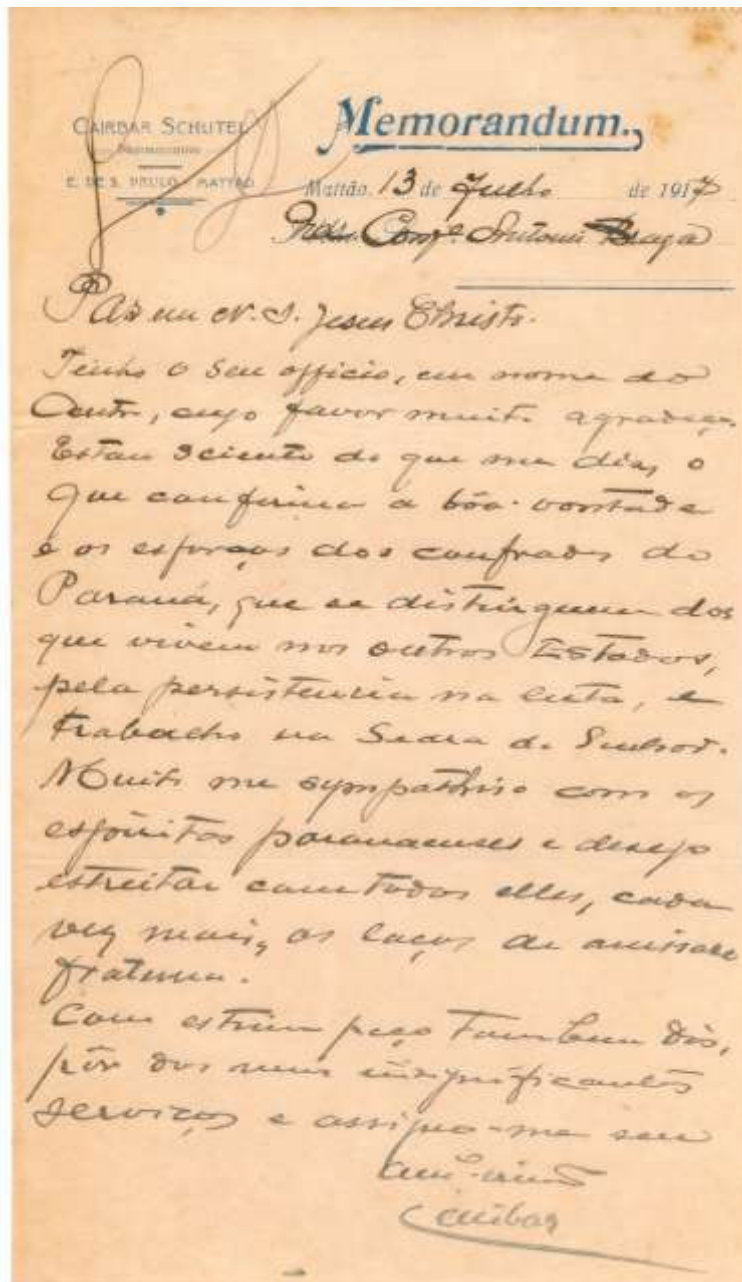 CAIRBAR SCHUTEL
Pharmaceutico
E. DE S. PAULO - MATTÃO
Memorandum.
Mattão, 13 de Julho de 1917
Conf.e Antonio Braga
Paz em N. S. Jesus Christo.
Tenho o seu officio, em nome do
Centro, cujo favor muito agradeço.
Estou sciente do que me diz, o
que confirma a bôa-vontade
e os esforços dos confrades do
Paraná, que se distinguem dos
que vivem nos outros Estados,
pela persistencia na luta, e
trabalho na Seára do Senhor.
Muito me sympathiso com os
espiritas paranaenses e desejo
estreitar com todos elles, cada
vez mais, os laços de amisade
fraterna.
Com estima peço tambem dis,
pôr dos meus insignificantes
serviços e assigno-me seu
am.º irmão
Cairbar